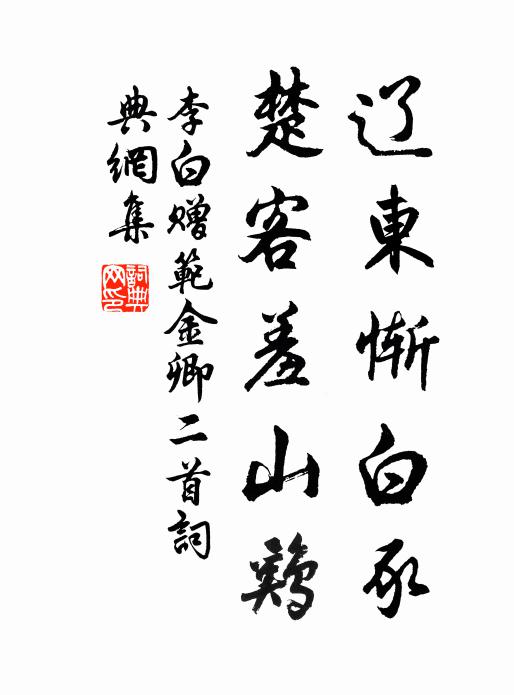 辽東慚白豕
楚客羞山鷄
李白贈範金卿二首詞
典網集
詞典
网印